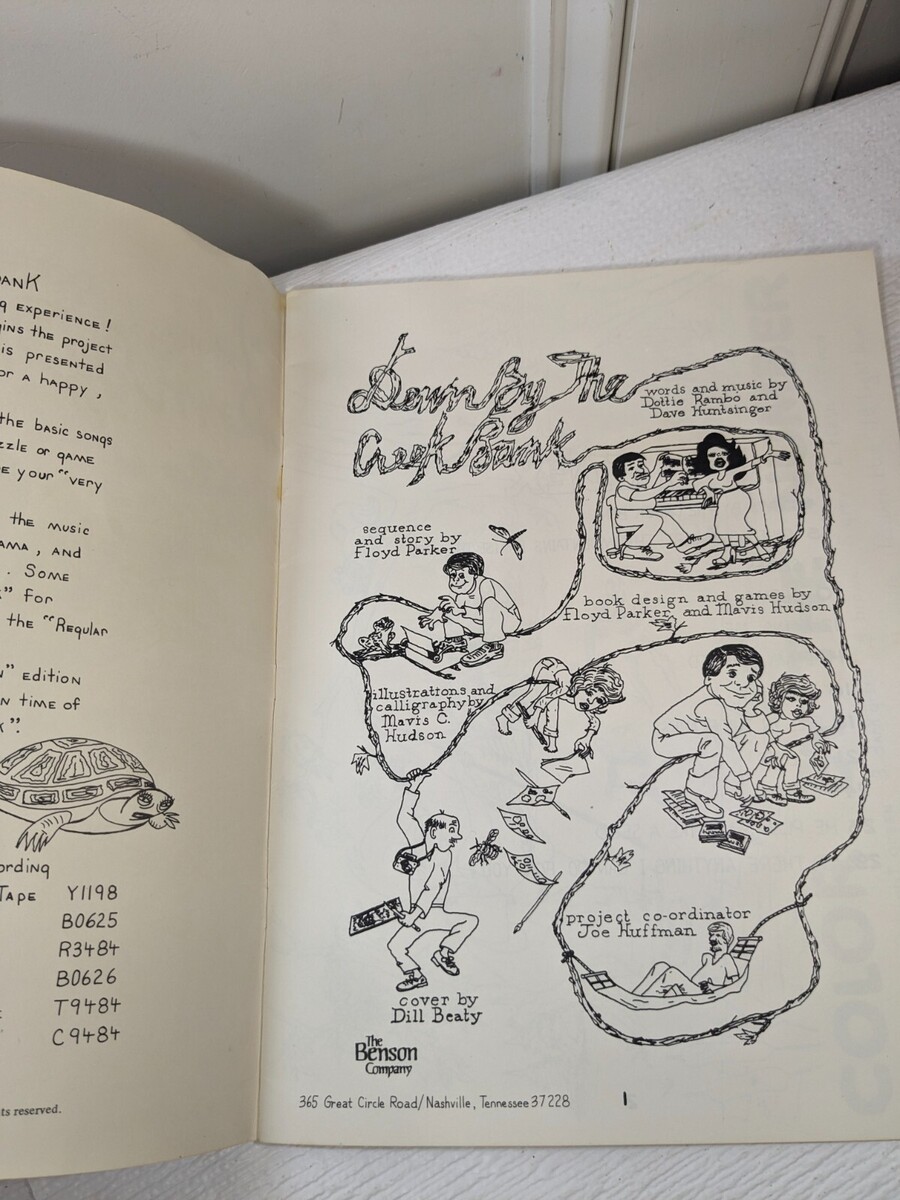 ANK
g experience!
ins the project
is presented
or a happy,
the basic songs
zzle or game
e your "very
the music
ama, and
. Some
" for
the "Regular
" edition
n time of
k".
ording
Tape Y1198
B0625
R3484
B0626
T9484
C9484
ts reserved.
Down By The
Creek Bank
words and music by
Dottie Rambo and
Dave Huntsinger
sequence
and story by
Floyd Parker
book design and games by
Floyd Parker and Mavis Hudson
illustrations and
calligraphy by
Mavis C.
Hudson
project co-ordinator
Joe Huffman
cover by
Dill Beaty
The
Benson
Company
365 Great Circle Road/Nashville, Tennessee 37228
1